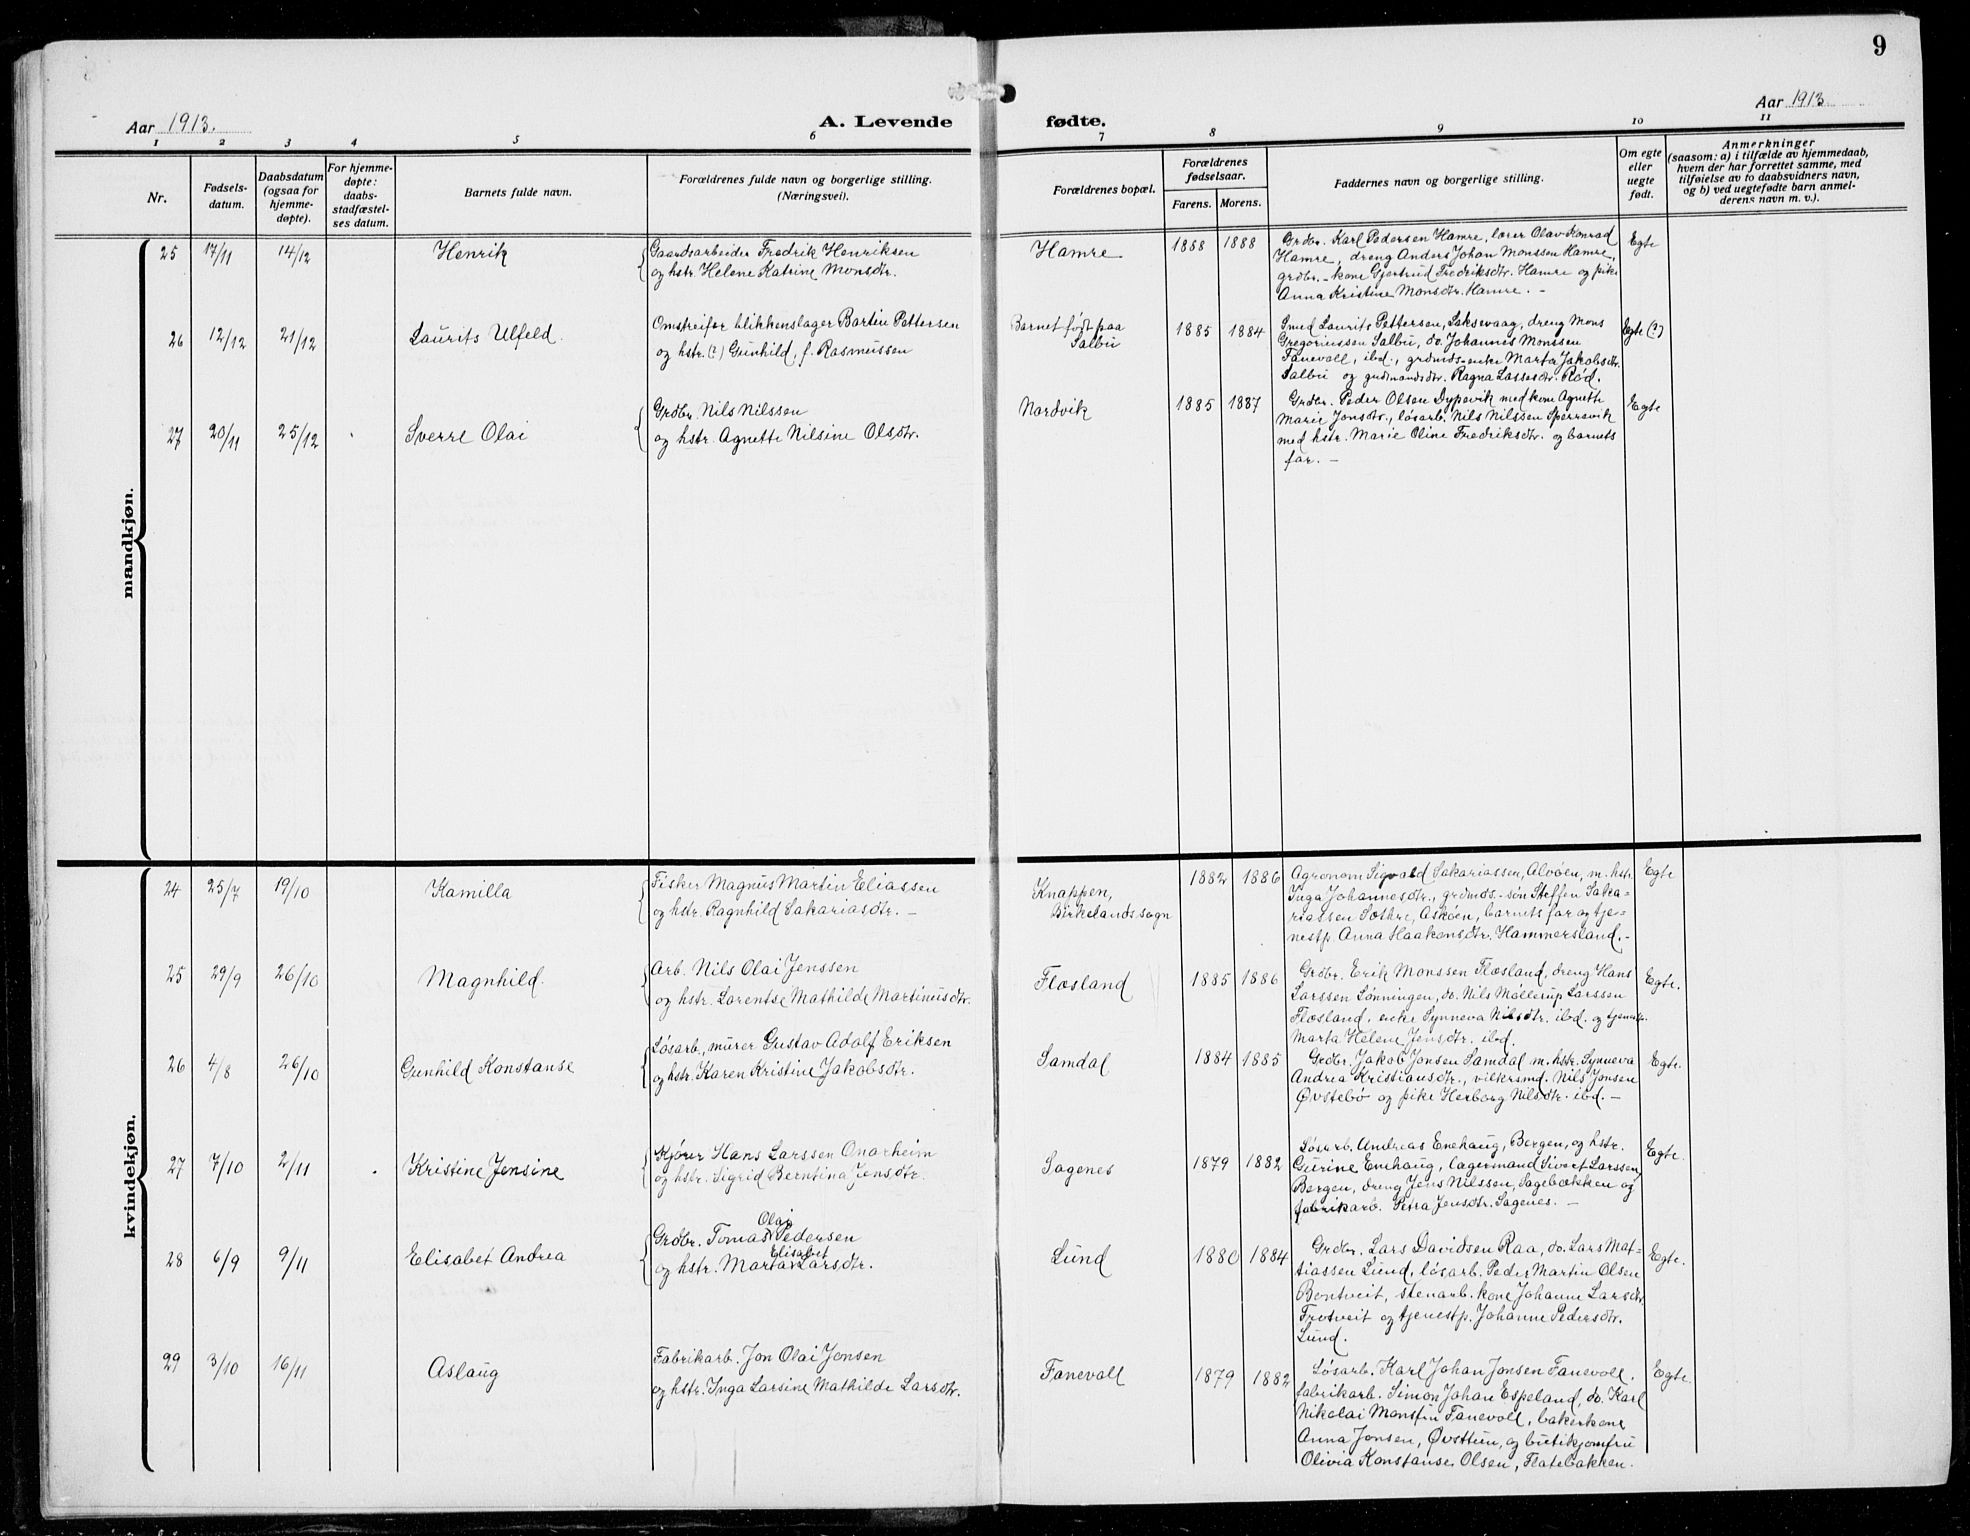 9
Aar 1913.
A. Levende
fødte.
Aar 1913
1 2 3 4 5 6 7 8 9 10 11
Nr.
Fødsels-
datum.
Daabsdatum
(ogsaa for
hjemme-
døpte).
For hjemme-
døpte:
daabs-
stadfæstel-
ses datum.
Barnets fulde navn.
Forældrenes fulde navn og borgerlige stilling.
(Næringsvei).
Forældrenes bopæl.
Forældrenes
fødselsaar.
Farens. Morens.
Faddernes navn og borgerlige stilling.
Om egte
eller
uegte
født.
Anmerkninger
(saasom: a) i tilfælde av hjemmedaab,
hvem der har forrettet samme, med
tilføielse av to daabsvidners navn,
og b) ved uegtefødte barn anmel-
derens navn m. v.).
mandkjøn.
25 17/11 14/12 Henrik
Gaardsarbeider Fredrik Henriksen
og hstr. Helene Katrine Monsdtr.
Hamre 1888 1888
Grdbr. Karl Pedersen Hamre, lærer Olav Konrad
Hamre, dreng Anders Johan Monssen Hamre,
grdbr.-kone Gjertrud Fredriksdtr. Hamre og pike
Anna Kristine Monsdtr. Hamre. -
Egte
26 12/12 21/12 Laurits Ulfeld.
Omstreifer blikkenslager Bartin Pettersen
og hstr. (?) Gunhild, f. Rasmussen
Barnet født paa
Salbu
1885 1884
Smed Laurits Pettersen, Saksevaag, dreng Mons
Gregoriussen Salbu, do. Johannes Monssen
Fanevoll, ibd., grdmds-enke Marta Jakobsdtr.
Salbu og grdmandsdtr. Ragna Lassesdtr. Rød.
Egte (?)
27 20/11 25/12 Sverre Olai
Grdbr. Nils Nilssen
og hstr. Agnette Nilsine Olsdtr.
Nordvik 1885 1887
Grdbr. Peder Olsen Dypevik med kone Agnette
Marie Jonsdtr., løsarb. Nils Nilssen Sperrevik
med hstr. Marie Oline Fredriksdtr. og barnets
far. -
Egte
kvindekjøn.
24 25/7 19/10 Kamilla
Fisker Magnus Martin Eliassen
og hstr. Ragnhild Sakariasdtr. -
Knappen,
Birkelandssogn
1882 1886
Agronom Sigvald Sakariassen, Alvøen, m. hstr.
Inga Johannesdtr., grdmds.-søn Steffen Saka-
riassen Sæthre, Askøen, barnets far og tje-
nestp. Anna Haakonsdtr. Hammersland. -
Egte
25 29/9 26/10 Magnhild.
Arb. Nils Olai Jenssen
og hstr. Lorentse Mathilde Martinusdtr.
Flæsland 1885 1886
Grdbr. Erik Monssen Flæsland, dreng Hans
Larssen Lønningen, do. Nils Møllerup Larssen
Flæsland, enke Synneva Nilsdtr. ibd. og tjenestp.
Marta Helene Jensdtr. ibd.
Egte.
26 4/8 26/10 Gunhild Konstanse
Løsarb., murer Gustav Adolf Eriksen
og hstr. Karen Kristine Jakobsdtr.
Samdal 1884 1885
Grdbr. Jakob Jonsen Samdal m. hstr. Synneva
Andrea Kristiansdtr., vilkrsmd. Nils Jonsen
Øvstebø og pike Herborg Nilsdtr. ibd. -
Egte.
27 7/10 2/11 Kristine Jensine
Kjører Hans Larssen Onarheim
og hstr. Sigrid Berntina Jensdtr.
Sagenes 1879 1882
Løsarb. Andreas Enehaug, Bergen, og hstr.
Gurine Enehaug, lagermand Sivert Larssen,
Bergen, dreng Jens Nilssen, Sagebækken og
fabrikarb. Petra Jensdtr. Sagenes. -
Egte.
28 6/9 9/11 Elisabet Andrea
Olai
Grdbr. Tomas Pedersen
Elisabet
og hstr. Marta Larsdtr.
Lund 1880 1884
Grdbr. Lars Davidsen Raa, do. Lars Mat-
tiassen Lund, løsarb. Peder Martin Olsen
Bontveit, stenarb. kone Johanne Larsdtr.
Frotveit og tjenestp. Johanne Pedersdtr.
Lund.
Egte.
29 3/10 16/11 Aslaug
Fabrikarb. Jon Olai Jonsen
og hstr. Inga Larsine Mathilde Larsdtr.
Fanevoll 1879 1882
Løsarb. Karl Johan Jonsen Fanevoll,
fabrikarb. Simon Johan Espeland, do. Karl
Nikolai Monsen Fanevoll, bakerkone
Anna Jonsen, Øvsttun, og butikjomfru
Olivia Konstanse Olsen, Flatebakken.
Egte.